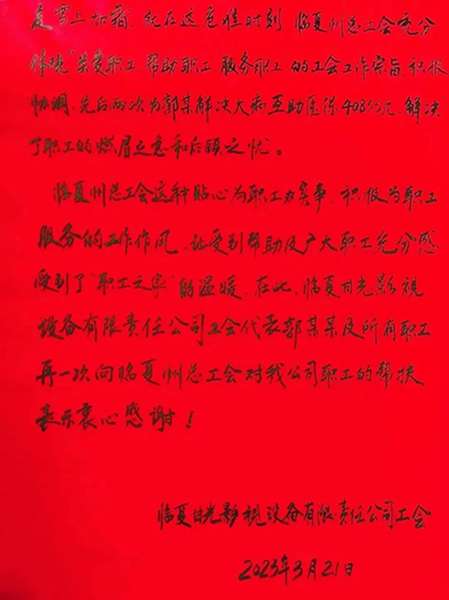 是雪上加霜，就在这危难时刻，临夏州总工会充分
体现“关爱职工、帮助职工、服务职工”的工会工作宗旨，积极
协调，先后两次为郭某解决大和互助医保408公元，解决
了职工的燃眉之急和后顾之忧。
临夏州总工会这种贴心为职工办实事、积极为职工
服务的工作作风，让受到帮助及广大职工充分感
受到了“职工之家”的温暖，在此，临夏日光影视
设备有限责任公司工会代表郭某某及所有职工
再一次向临夏州总工会对我公司职工的帮扶
表示衷心感谢！
临夏日光影视设备有限责任公司工会
2023年3月21日